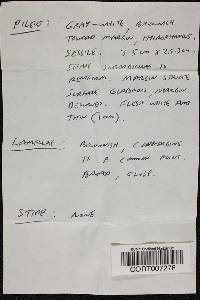 PILEUS: GRAY-WHITE, BROWNISH
TOWARD MARGIN, HYGROPHANOUS,
SESSILE. 3-5cm x 2.5-3cm
SEMI SUBORBICULAR TO
RENIFORM. MARGIN STRIATE
SURFACE GLABROUS, MARGIN
DECURVED. FLESH WHITE AND
THIN (1mm).
LAMELLAE: BROWNISH, CONVERGING
TO A COMMON POINT.
BROAD, CLOSE.
STIPE: NONE
CORT007276